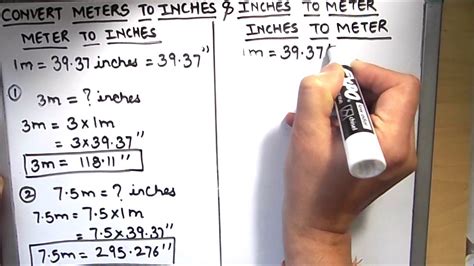 CONVERT METERS TO INCHES & INCHES TO METER
METER TO INCHES
1m = 39.37 inches = 39.37"
①
3m = ? inches
3m = 3×1m
= 3×39.37"
3m = 118.11"
② 7.5m = ? inches
7.5m = 7.5×1m
= 7.5×39.37"
7.5m = 295.276"
INCHES TO METER
1m = 39.37
EXPO